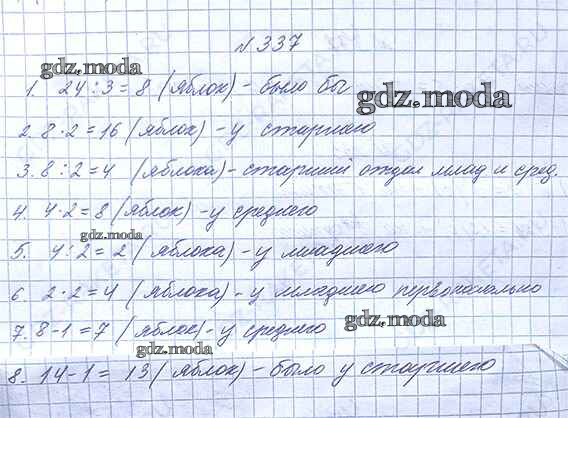 N 337
gdz.moda
1. 24 : 3 = 8 (яблок) - было бы
gdz.moda
2. 8 · 2 = 16 (яблок) - у старшего
3. 8 : 2 = 4 (яблока) - старший отдал млад и сред.
4. 4 · 2 = 8 (яблок) - у среднего
gdz.moda
5. 4 : 2 = 2 (яблока) - у младшего
6. 2 · 2 = 4 (яблока) - у младшего первоначально
7. 8 - 1 = 7 (яблок) - у среднего
gdz.moda
gdz.moda
8. 14 - 1 = 13 (яблок) - было у старшего